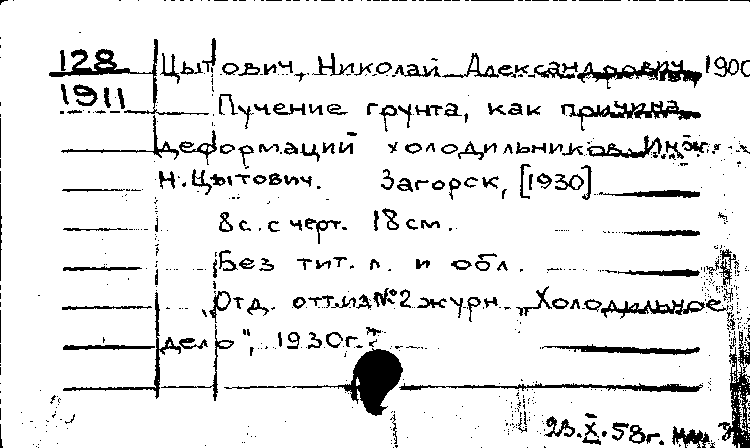 128 Цытович, Николай Александрович, 1900
1911 Пучение грунта, как причина
деформаций холодильников. Инж.
Н. Цытович. Загорск, [1930]
8 с. с черт. 18 см.
Без тит. л. и обл.
„Отд. отт. из № 2 журн. „Холодильное
дело", 1930 г.
23.X.58 г.